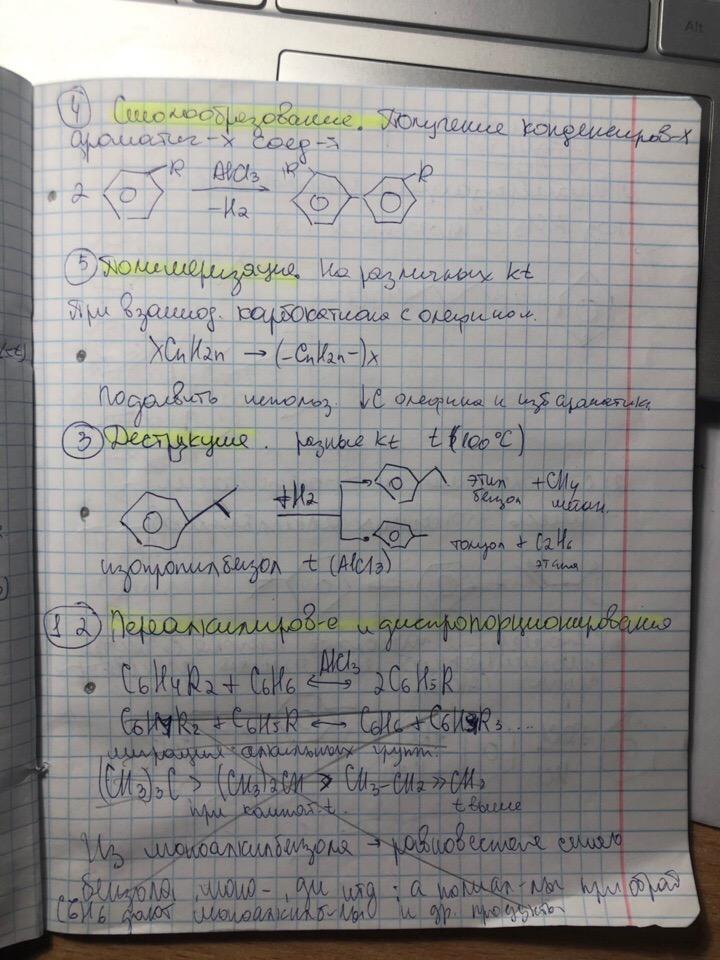 ④ Смолообразование. Получение конденсиров-х
ароматич-х соед-й
2 R AlCl3 -H2 R R
⑤ Полимеризация. На различных kt
При взаимод. карбокатиона с олефином.
XCnH2n → (-CnH2n-)x
Подавить использ. ↓C олефина и изб ароматики.
③ Деструкция. разные kt t (100°C)
+H2 этил бензол + CH4 метан.
толуол + C2H6 этана
изопропилбензол t (AlCl3)
1 2 Переалкилиров-е и диспропорционирования
C6H4R2 + C6H6 AlCl3 ⟷ 2C6H5R
C6H4R2 + C6H5R ⟷ C6H6 + C6H3R3 ....
миграция алкильных групп.
(CH3)3C > (CH3)2CH > CH3-CH2 >> CH3
при комнат t. t выше
Из моноалкилбензола → равновесное смесью
бензола, моно-, ди итд; а полиал-лы при обраб
C6H6 дают моноалкилб-лы и др. продукты